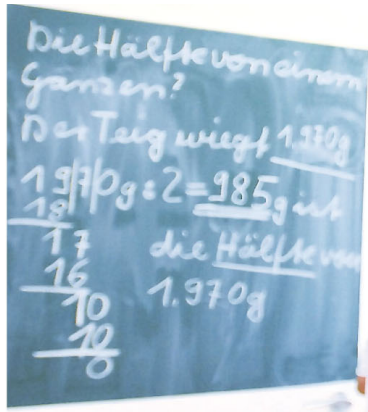 Die Hälfte von einem
Ganzen?
Der Teig wiegt 1.970g
1970g : 2 = 985g ist
18
17 die Hälfte von
16 1.970g
10
10
0